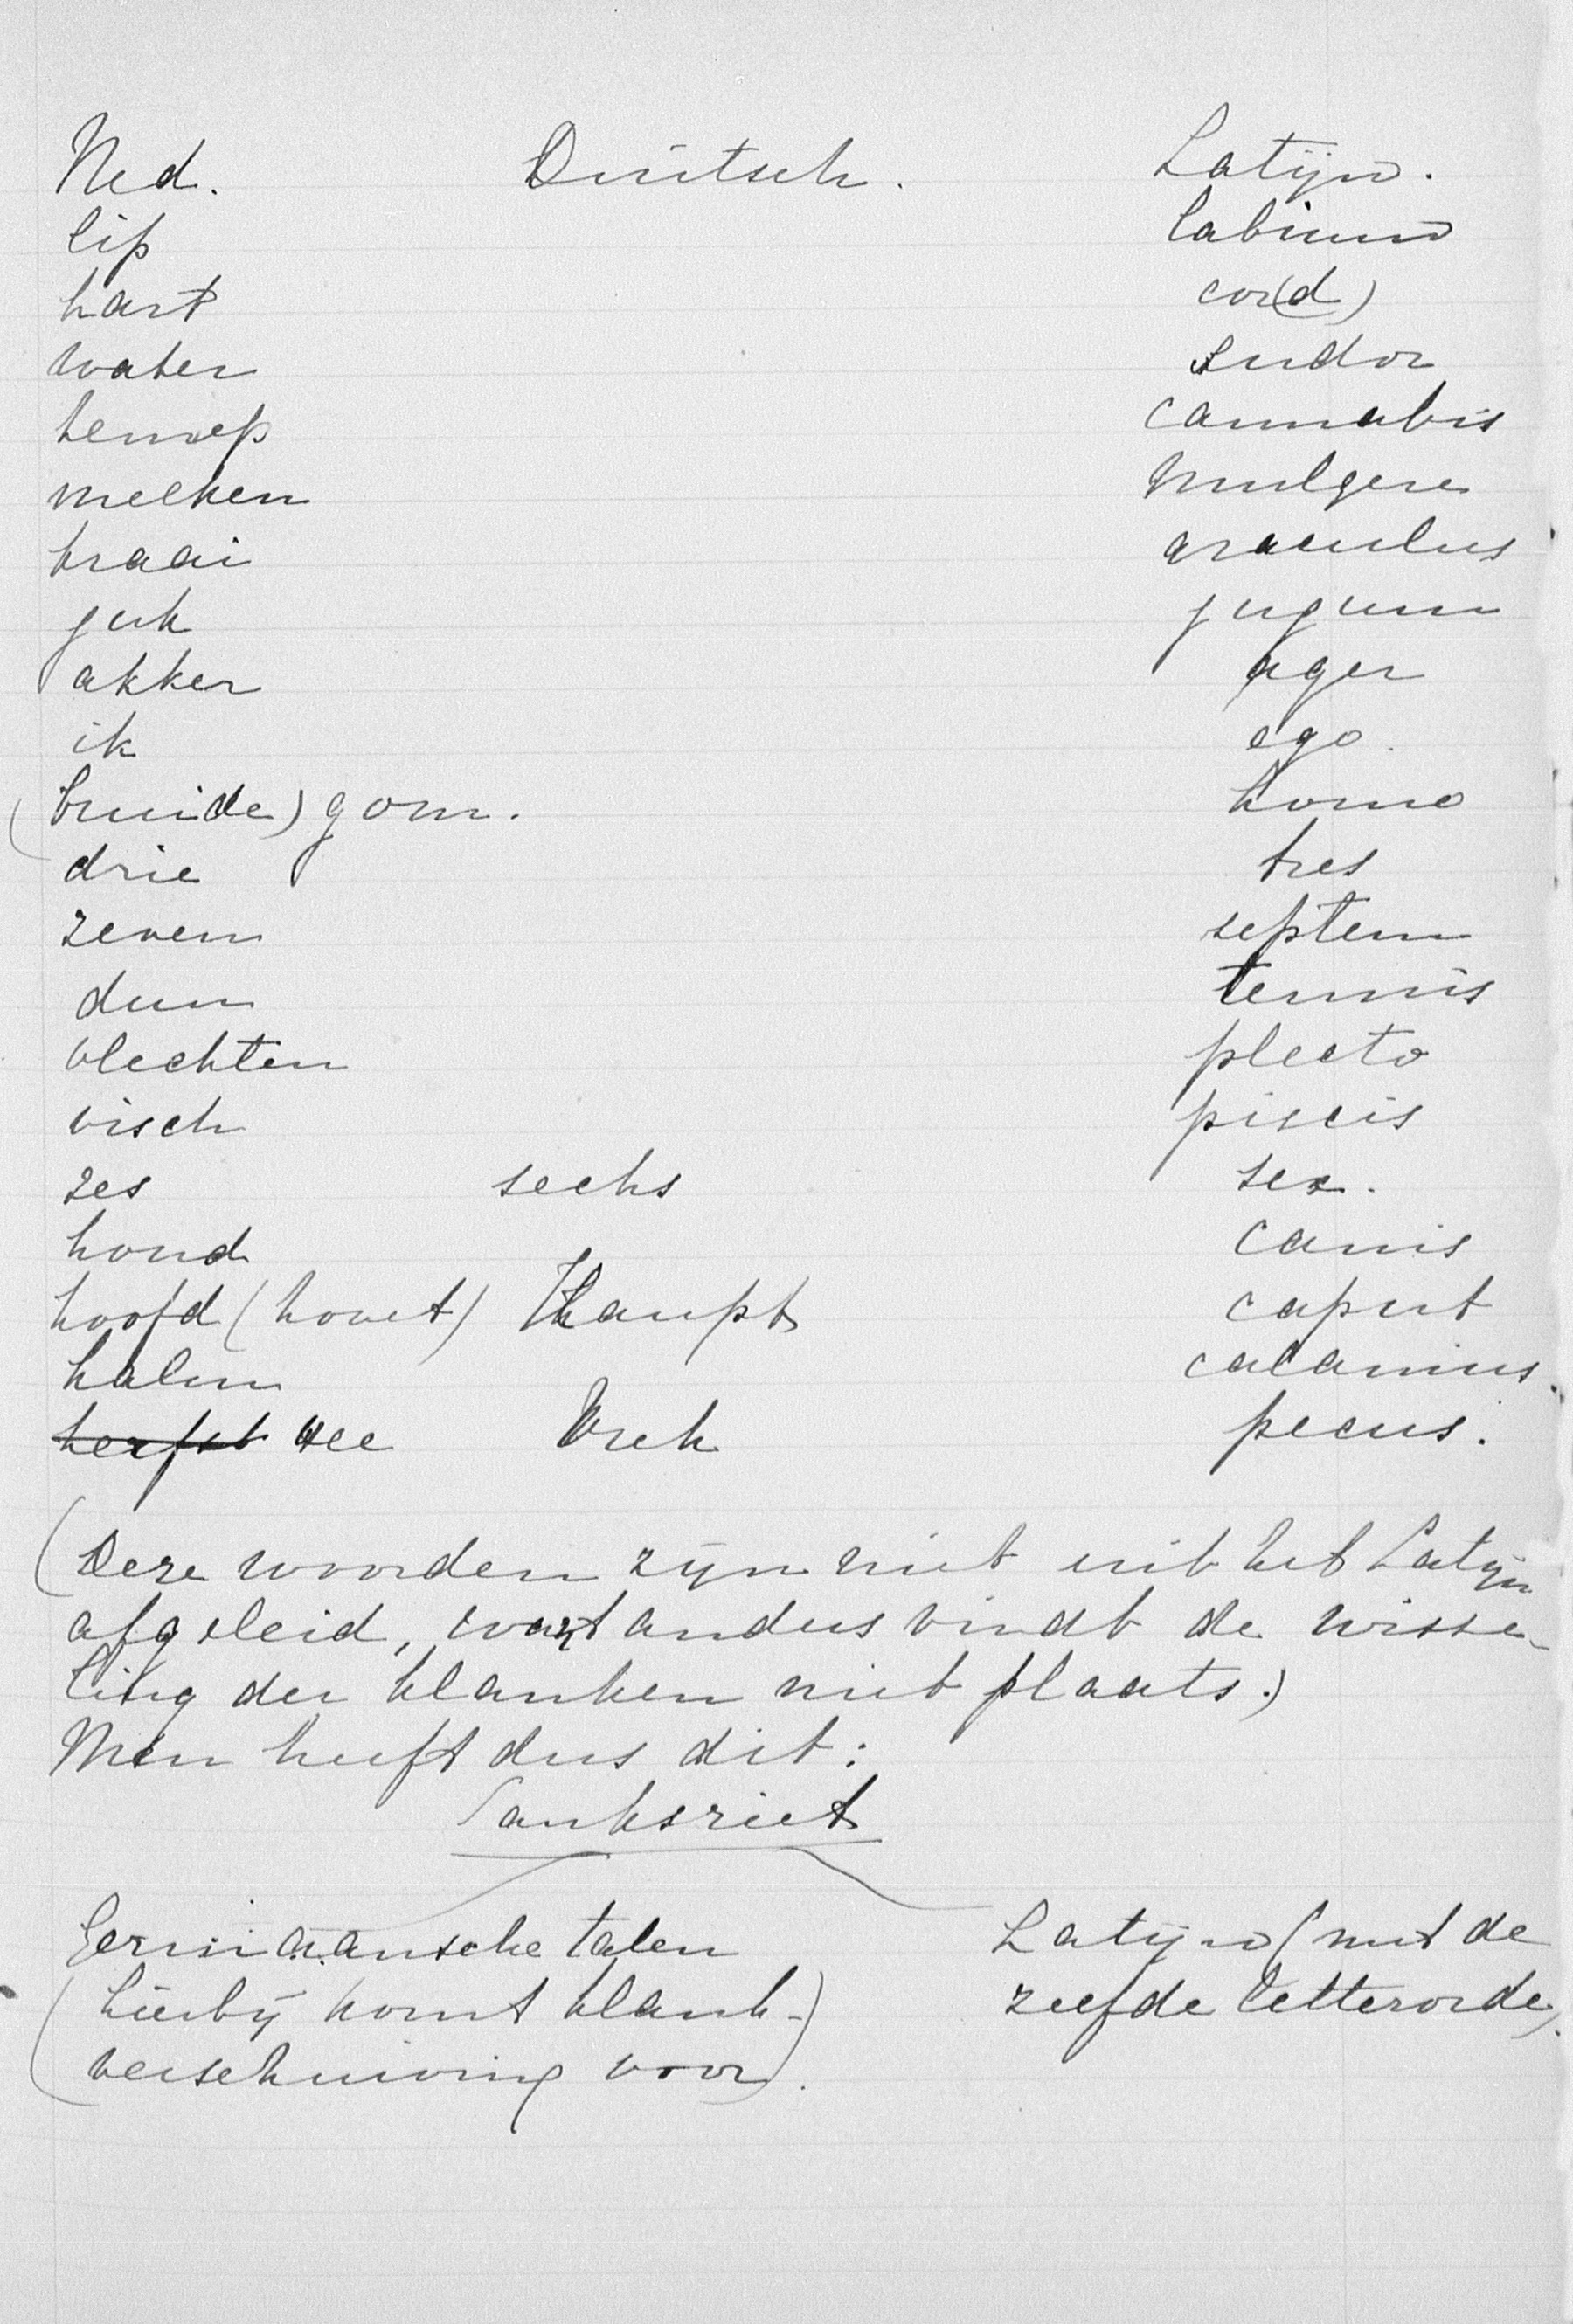 Ned. Duitsch. Latijn.
lip labium
hart cor(d)
water sudor
hennep cannabis
melken mulgere
kraai graculus
juk jugum
akker ager
ik ego.
(bruide)gom. homo
drie tres
zeven septem
dun tennis
vlechten plecto
visch piscis
zes sechs sex.
hond canis
hoofd (hovet) Haupt caput
halm calamus.
herfst vee Vieh pecus.
(Deze woorden zijn niet uit het Latijn
afgeleid, want anders vindt de wisse-
ling der klanken niet plaats.)
Men heeft dus dit:
Sanksriet
Germaansche talen Latijn (met de
(hierbij komt klank- zelfde letterorde).
verschuiving voor).